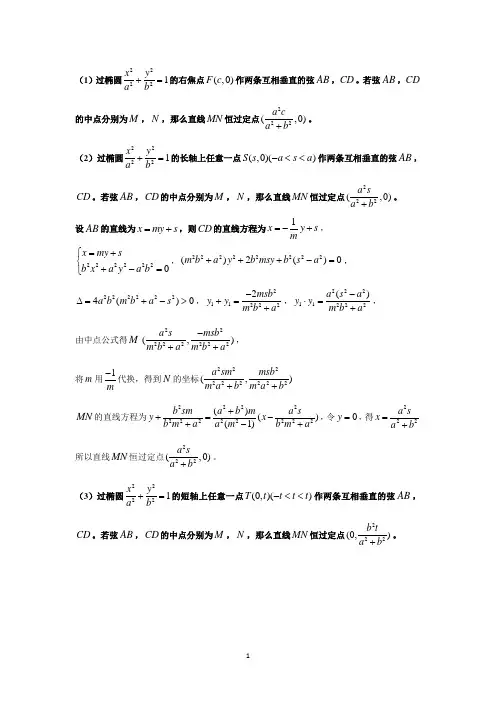 （1）过椭圆 x²/a² + y²/b² = 1 的右焦点 F(c,0) 作两条互相垂直的弦 AB，CD。若弦 AB，CD
的中点分别为 M，N，那么直线 MN 恒过定点 (a²c/(a²+b²),0)。
（2）过椭圆 x²/a² + y²/b² = 1 的长轴上任意一点 S(s,0)(−a<s<a) 作两条互相垂直的弦 AB，
CD。若弦 AB，CD 的中点分别为 M，N，那么直线 MN 恒过定点 (a²s/(a²+b²),0)。
设 AB 的直线为 x=my+s，则 CD 的直线方程为 x=−(1/m)y+s，
{ x=my+s
b²x²+a²y²−a²b²=0 ，(m²b²+a²)y²+2b²msy+b²(s²−a²)=0，
Δ=4a²b²(m²b²+a²−s²)>0，y₁+y₁=−2msb²/(m²b²+a²)，y₁·y₁=a²(s²−a²)/(m²b²+a²)，
由中点公式得 M (a²s/(m²b²+a²), −msb²/(m²b²+a²))，
将 m 用 −1/m 代换，得到 N 的坐标 (a²sm²/(m²a²+b²), msb²/(m²a²+b²))
MN 的直线方程为 y+b²sm/(b²m²+a²)=(a²+b²)m/(a²(m²−1))(x−a²s/(b²m²+a²))，令 y=0，得 x=a²s/(a²+b²)
所以直线 MN 恒过定点 (a²s/(a²+b²),0)。
（3）过椭圆 x²/a² + y²/b² = 1 的短轴上任意一点 T(0,t)(−t<t<t) 作两条互相垂直的弦 AB，
CD。若弦 AB，CD 的中点分别为 M，N，那么直线 MN 恒过定点 (0,b²t/(a²+b²))。
1